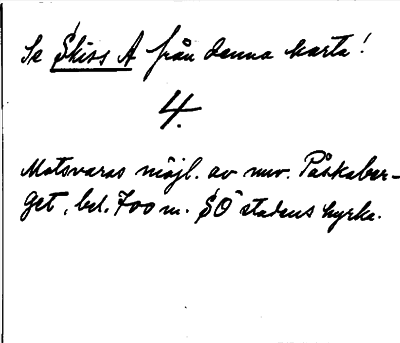 Se Skiss A från denna karta!
4.
Motsvaras möjl. av nuv. Påskaber-
get, bel. 700 m. SÖ stadens kyrka.